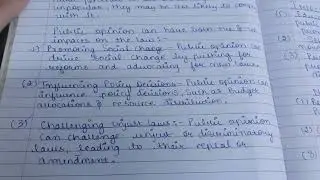 unpopular, they may be less likely to comply
with it.
Public opinion can have both +ve &
impacts on the law:-
1) Promoting Social change - Public opinion can
drive social change by pushing for
reforms and advocating for new laws.
(2) Influencing Policy Decisions - Public opinion can
influence policy decisions, such as budget
allocations & resource distribution.
(3) Challenging unjust laws:- Public opinion
can challenge unjust or discriminatory
laws, leading to their repeal or
amendment.
(2)
(3)
(1)
(2)
(3)